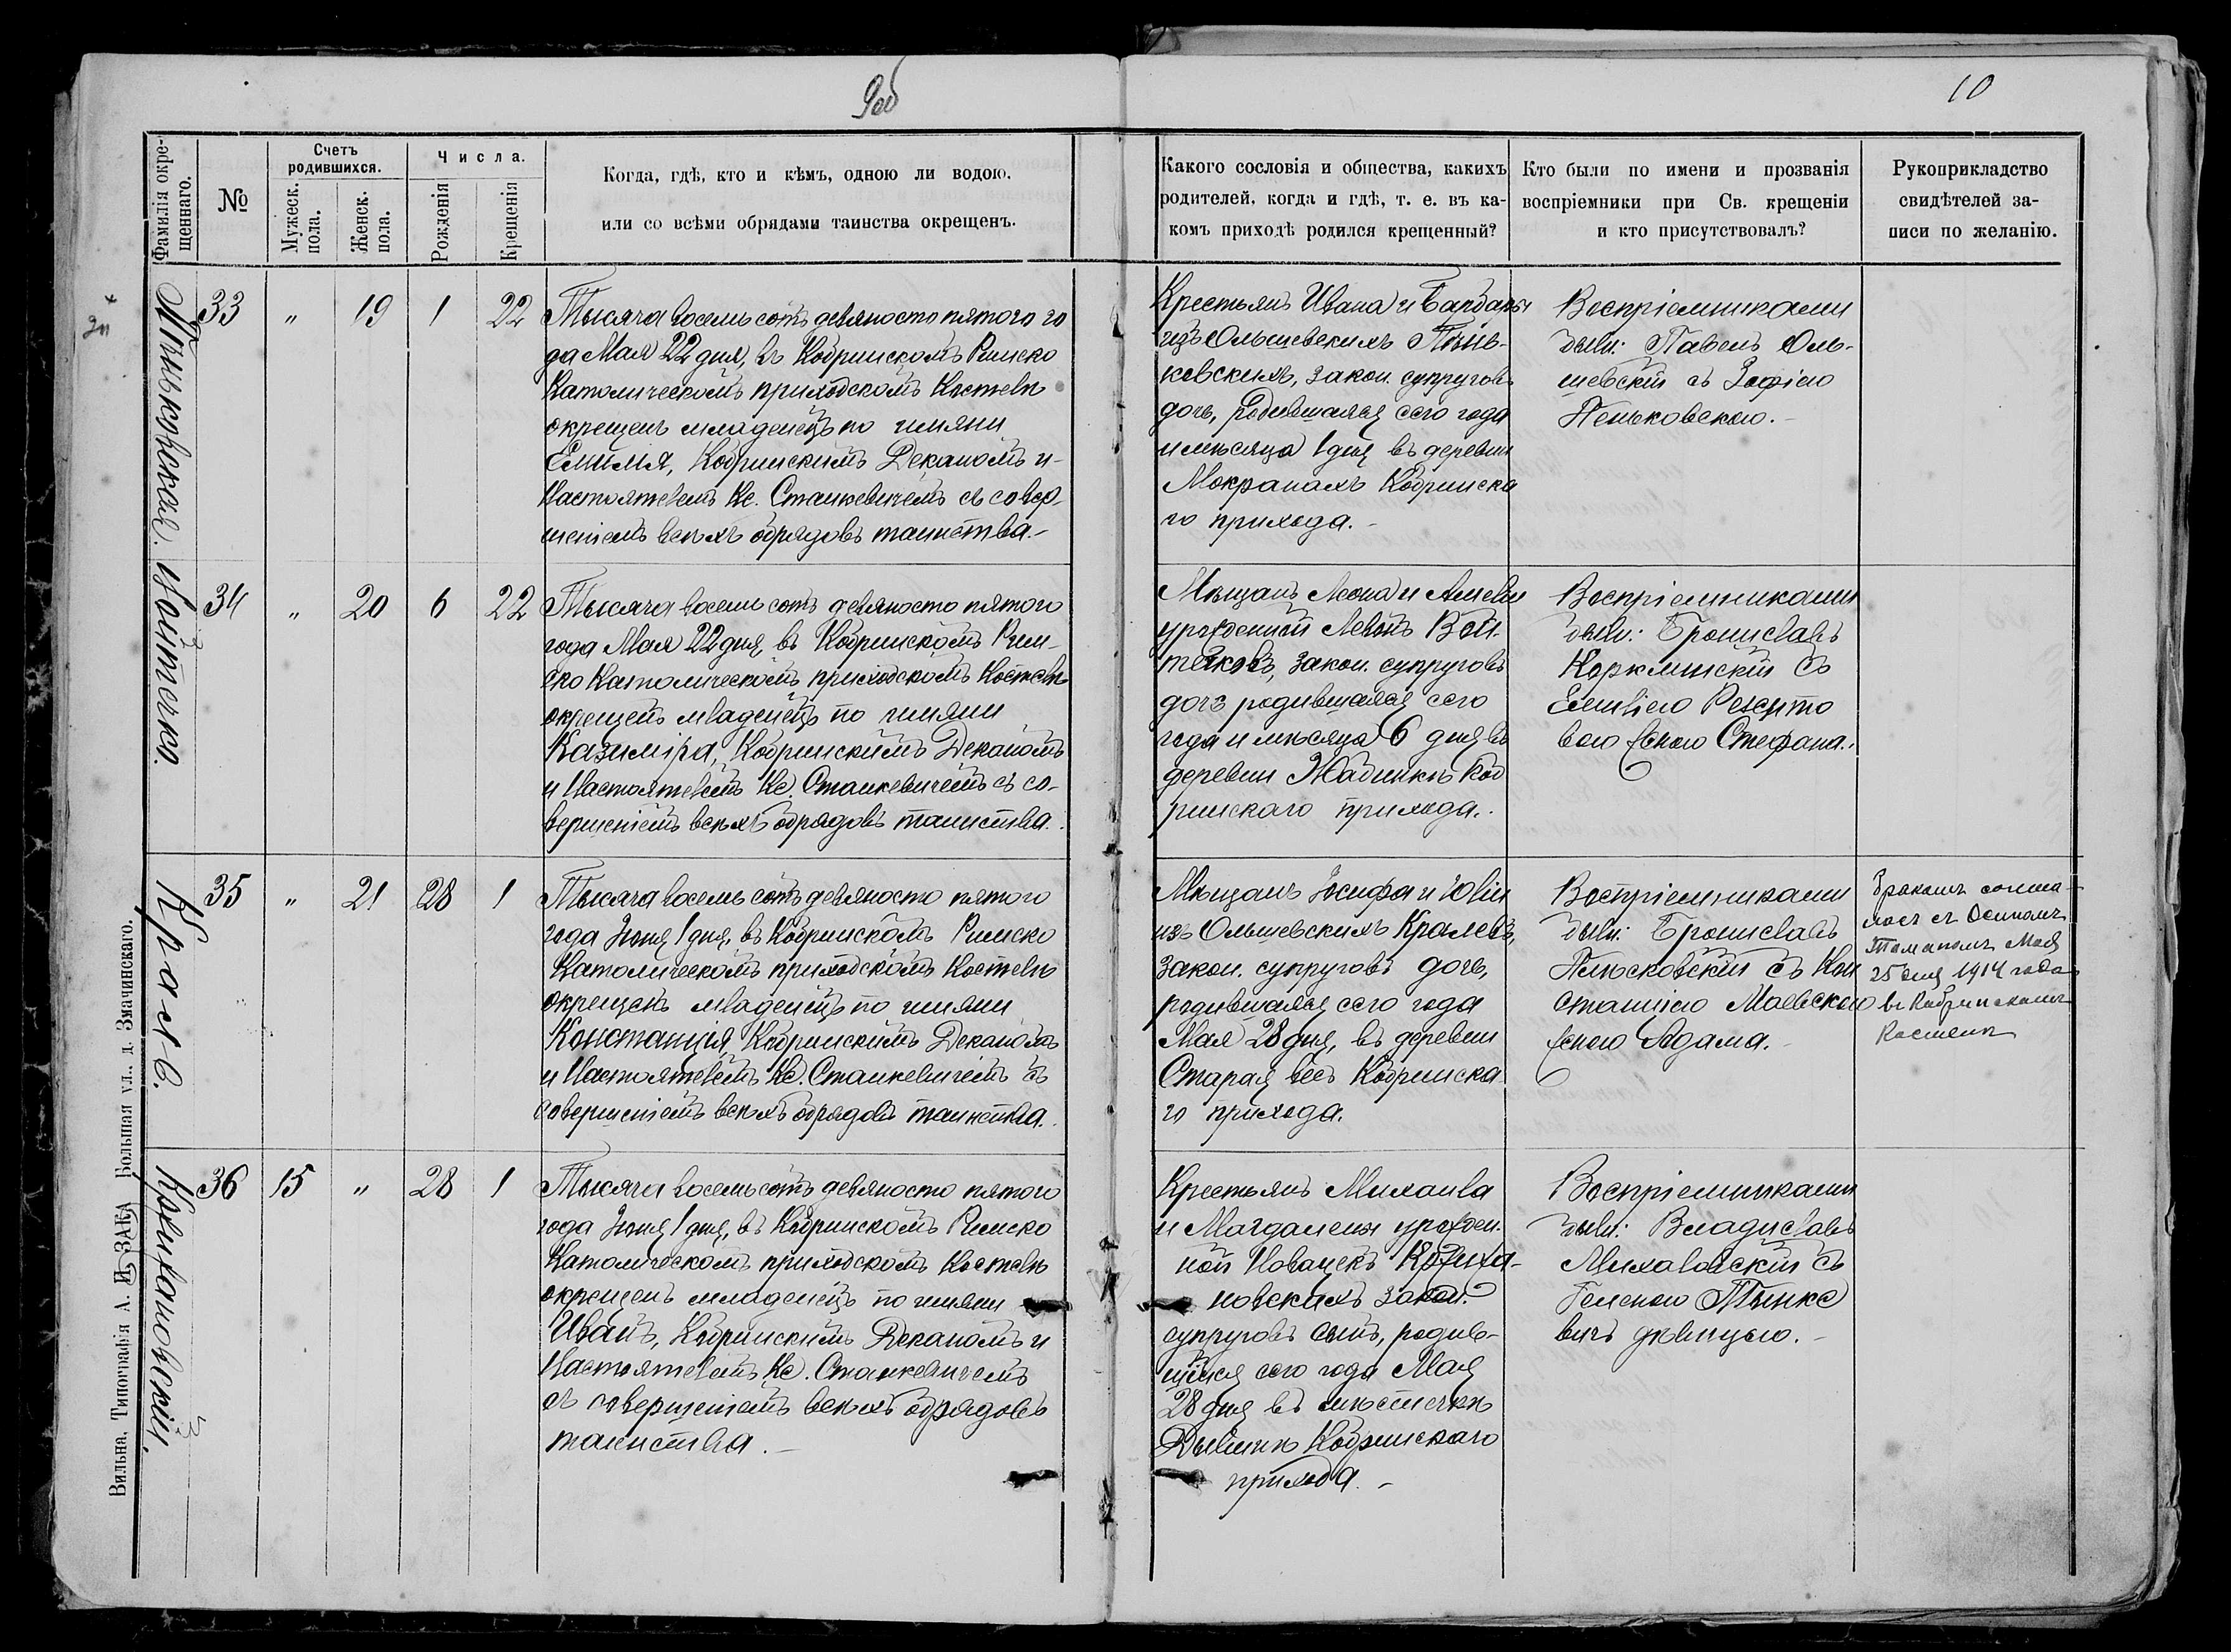 9об
10
Фамилія окре-
щеннаго.
№
Счетъ
родившихся.
Мужеск.
пола.
Женск.
пола.
Числа.
Рожденія
Крещенія
Когда, гдѣ, кто и кѣмъ, одною ли водою,
или со всѣми обрядами таинства окрещенъ.
Какого сословія и общества, какихъ
родителей, когда и гдѣ, т. е. въ ка-
комъ приходѣ родился крещенный?
Кто были по имени и прозванія
воспріемники при Св. крещеніи
и кто присутствовалъ?
Рукоприкладство
свидѣтелей за-
писи по желанію.
Пѣньковская
33 " 19 1 22
Тысяча восемь сотъ девяносто пятого го
да Мая 22 дня, въ Кобринскомъ Римско
Католическомъ приходскомъ Костелѣ
окрещенъ младенецъ по имяни
Емилія, Кобринскимъ Деканомъ и
Настоятелемъ Кс. Станкевичемъ съ совер-
шеніемъ всѣхъ обрядовъ таинства.-
Крестьянъ Ивана и Барбары
изъ Ольшевскихъ Пѣнь-
ковскихъ, закон. супруговъ
дочь, родившаяся сего года
и мѣсяца 1 дня въ деревни
Мокранахъ Кобринска
го прихода. -
Воспріемниками
были: Павелъ Оль-
шевскій съ Зофіею
Пеньковскою. -
Войтечко.
34 " 20 6 22
Тысяча восемь сотъ девяносто пятого
года Мая 22 дня, въ Кобринскомъ Рим-
ско Католическомъ приходскомъ Костелѣ
окрещенъ младенецъ по имяни
Казиміра, Кобринскимъ Деканомъ
и Настоятелемъ Кс. Станкевичемъ съ со-
вершеніемъ всѣхъ обрядовъ таинства.
Мѣщанъ Леона и Амеліи
урожденной Левонъ Вой-
течковъ, закон. супруговъ
дочь родившаяся сего
года и мѣсяца 6 дня въ
деревни Жабинкѣ Коб
ринскаго прихода.
Воспріемниками
были: Брониславъ
Корклинскій съ
Емиліею
вою женою Стефана.
Кралъ.
35 " 21 28 1
Тысяча восемь сотъ девяносто пятого
года Іюня 1 дня, въ Кобринскомъ Римско
Католическомъ приходскомъ Костелѣ
окрещенъ младенецъ по имяни
Констанція, Кобринскимъ Деканомъ
и Настоятелемъ Кс. Станкевичемъ съ
совершеніемъ всѣхъ обрядовъ таинства.
Мѣщанъ Іосифа и Юліи
изъ Ольшевскихъ Кралевъ,
закон. супруговъ дочь,
родившаяся сего года
Мая 28 дня, въ деревни
Старая весь Кобринска
го прихода.
Воспріемниками
были: Брониславъ
Плюсковскій съ Кон
станціею Маевскою
женою Адама. -
Бракомъ сочета-
лась съ Осипомъ
Мая
25 дня 1914 года
въ Кобринскомъ
Костелѣ
36 15 " 28 1
Тысяча восемь сотъ девяносто пятого
года Іюня 1 дня, въ Кобринскомъ Римско
Католическомъ приходскомъ Костелѣ
окрещенъ младенецъ по имяни
Иванъ, Кобринскимъ Деканомъ и
Настоятелемъ Кс. Станкевичемъ
съ совершеніемъ всѣхъ обрядовъ
таинства. -
Крестьянъ Михаила
и Магдалены урожден.
ной Новацкъ
новскихъ закон.
супруговъ сынъ, родив-
шійся сего года Мая
28 дня въ мѣстечкѣ
Дывинѣ Кобринскаго
прихода. -
Воспріемниками
были: Владиславъ
Михаловскій съ
Геленою Тынке
вичъ дѣвицею. -
Вильна, Типографія А. И. ЗАКА Большая ул., д. Змачинскаго.